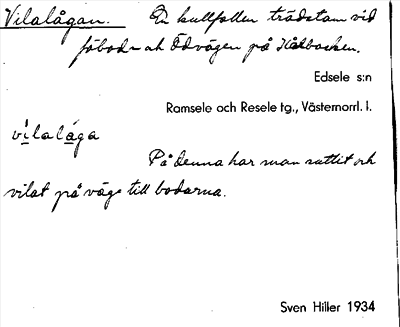 Vilalågan. En kullfallen trädstam vid
fäbod- ok Ödvägen på Kälbacken.
Edsele s:n
Ramsele och Resele tg., Västernorrl. l.
vilalåga
På denna har man suttit och
vilat på väg till bodarna.
Sven Hiller 1934